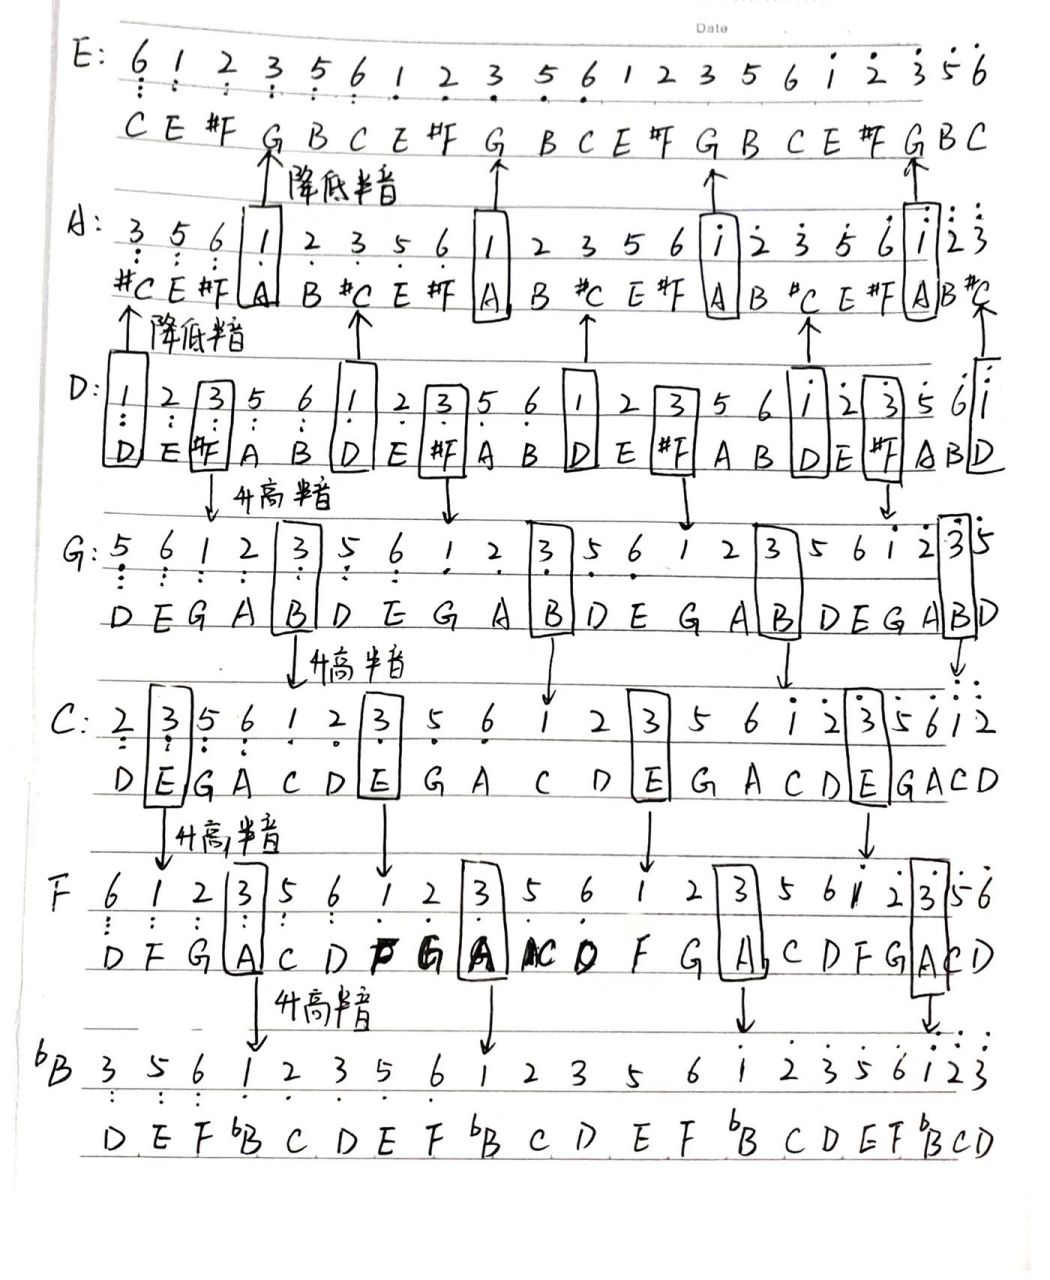 Date
E: 6 1 2 3 5 6 1 2 3 5 6 1 2 3 5 6 1 2 3 5 6
C E #F G B C E #F G B C E #F G B C E #F G B C
降低半音
A: 3 5 6 1 2 3 5 6 1 2 3 5 6 1 2 3 5 6 1 2 3
#C E #F A B #C E #F A B #C E #F A B #C E #F A B #C
降低半音
D: 1 2 3 5 6 1 2 3 5 6 1 2 3 5 6 1 2 3 5 6 1
D E #F A B D E #F A B D E #F A B D E #F A B D
升高半音
G: 5 6 1 2 3 5 6 1 2 3 5 6 1 2 3 5 6 1 2 3 5
D E G A B D E G A B D E G A B D E G A B D
升高半音
C: 2 3 5 6 1 2 3 5 6 1 2 3 5 6 1 2 3 5 6 1 2
D E G A C D E G A C D E G A C D E G A C D
升高半音
F 6 1 2 3 5 6 1 2 3 5 6 1 2 3 5 6 1 2 3 5 6
D F G A C D F G A C D F G A C D F G A C D
升高半音
bB 3 5 6 1 2 3 5 6 1 2 3 5 6 1 2 3 5 6 1 2 3
D E F bB C D E F bB C D E F bB C D E F bB C D